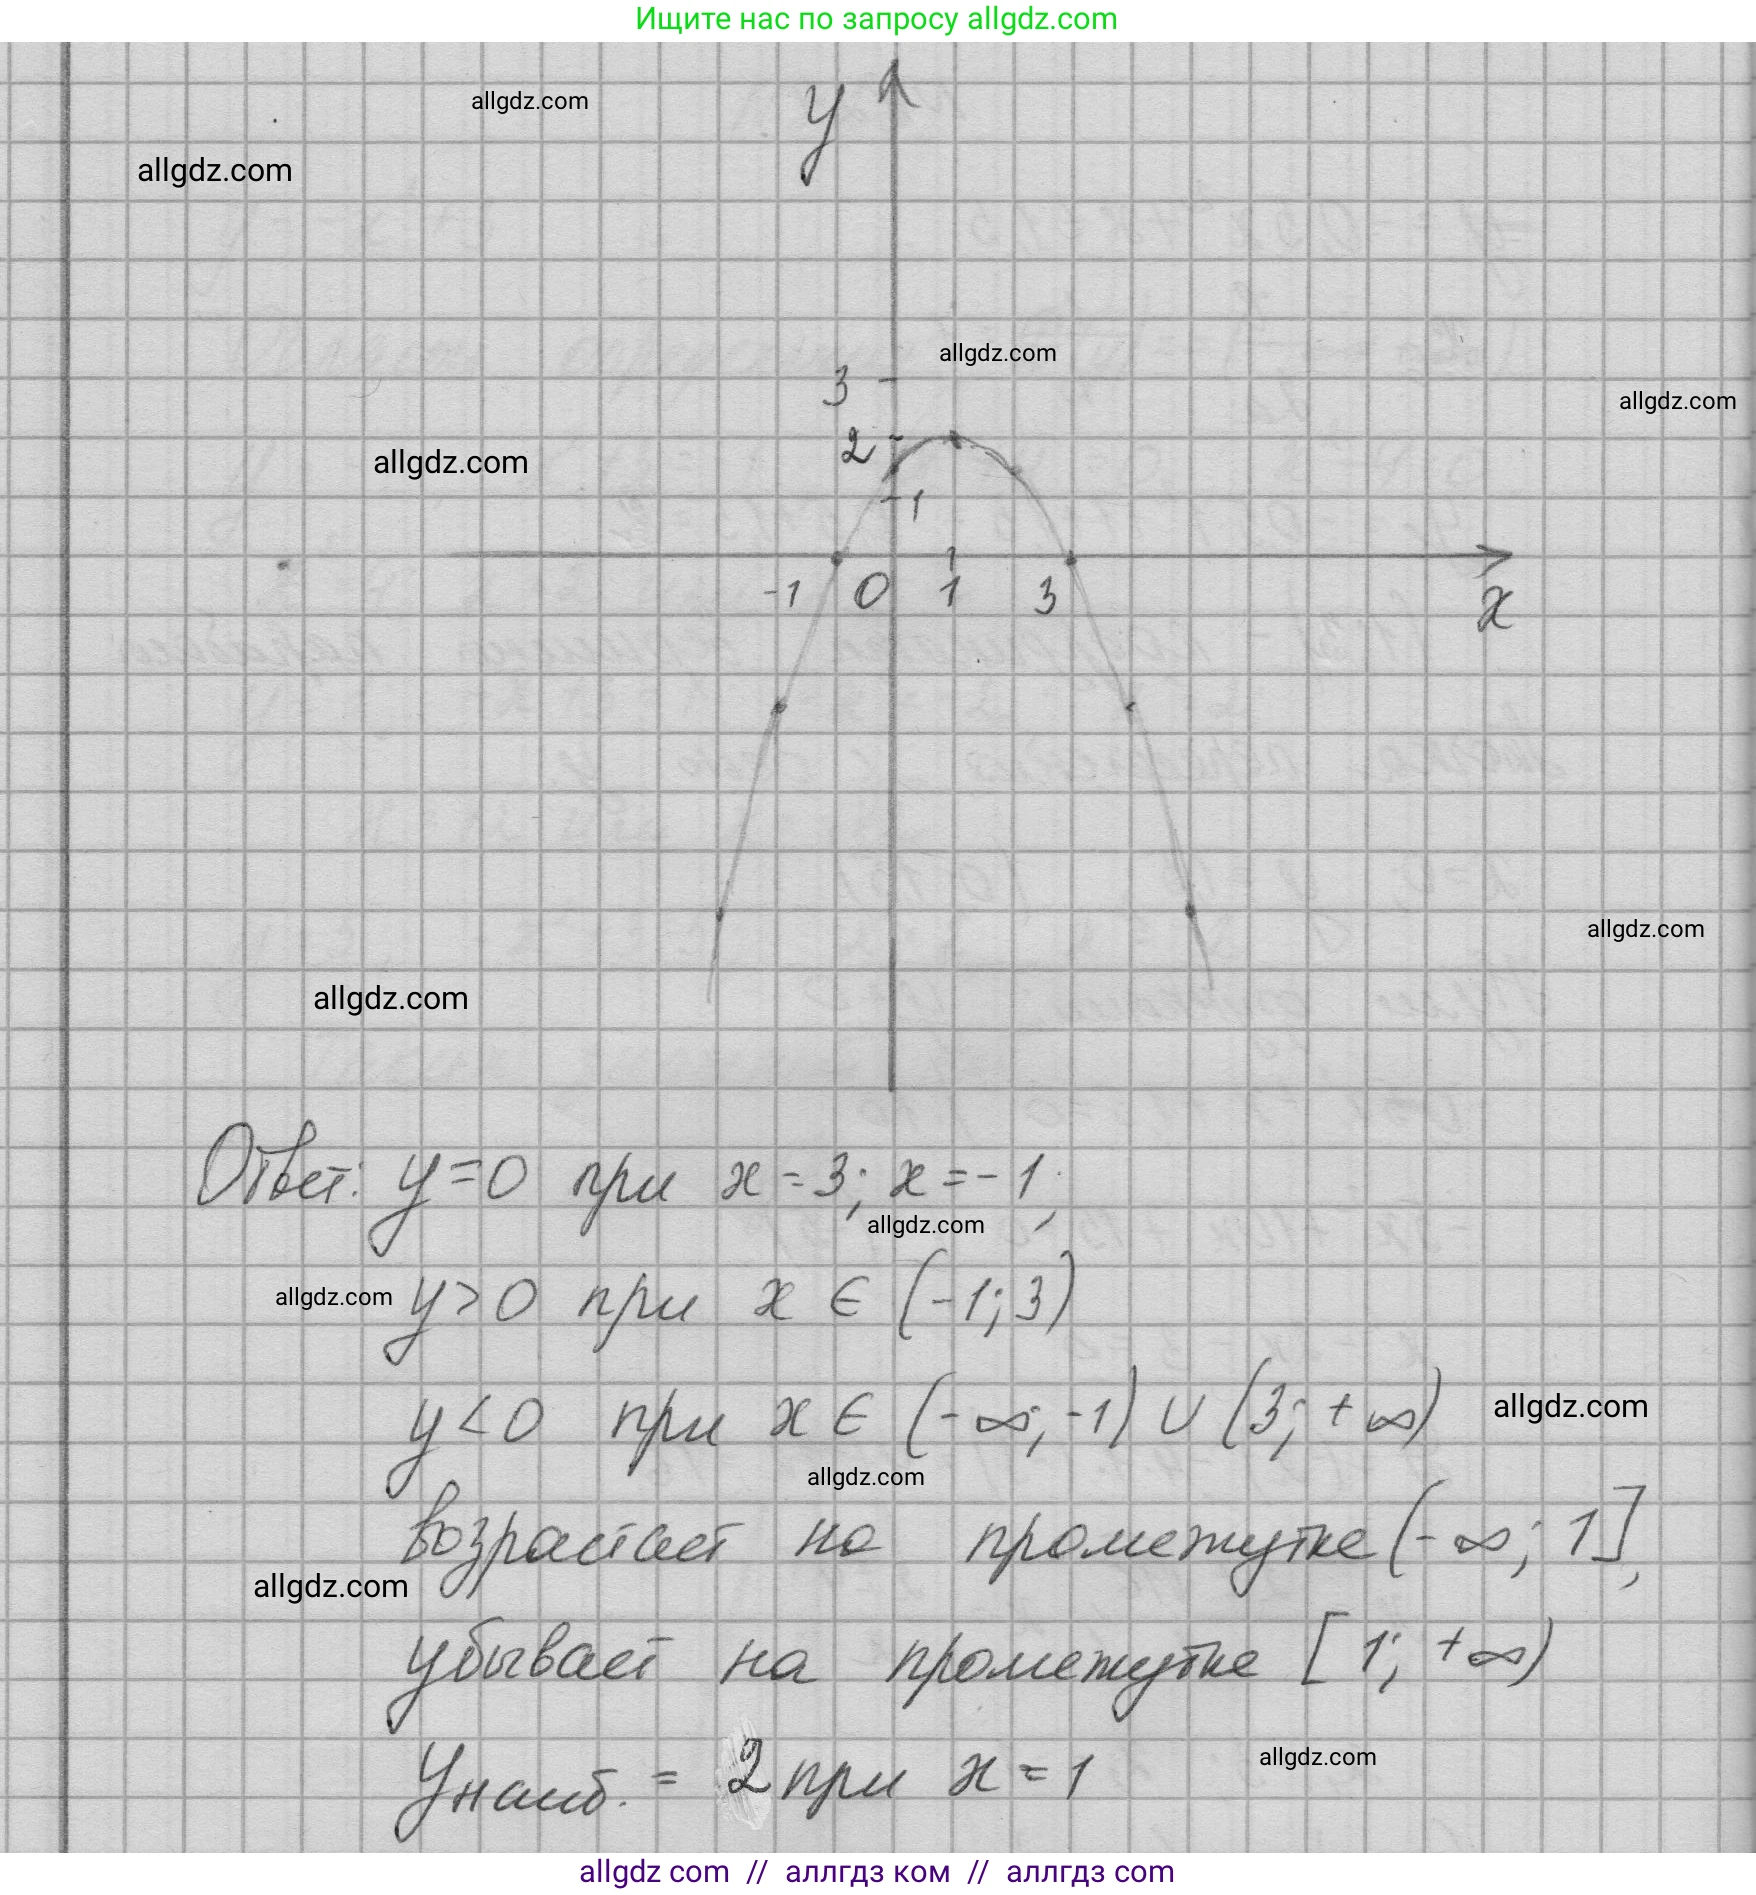 Ищите нас по запросу allgdz.com
allgdz.com
y
allgdz.com
allgdz.com
3
allgdz.com
2
allgdz.com
1
-1 0 1 3
x
allgdz.com
allgdz.com
Ответ: y=0 при x=3; x=-1;
allgdz.com
allgdz.com
y>0 при x ∈ (-1; 3)
y<0 при x ∈ (-∞; -1) ∪ (3; +∞)
allgdz.com
allgdz.com
возрастает на промежутке (-∞; 1],
allgdz.com
убывает на промежутке [1; +∞)
yнаиб. = 2 при x = 1
allgdz.com
allgdz com // аллгдз ком // аллгдз com